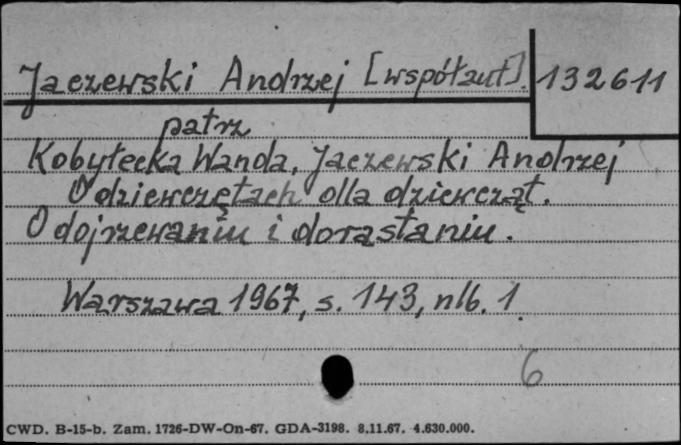 Jaczewski Andrzej [współaut]. 132611
patrz
Kobyłecka Wanda, Jaczewski Andrzej
O dziewczętach dla dziewcząt.
O dojrzewaniu i dorastaniu.
Warszawa 1967, s. 143, nlb. 1.
6
CWD. B-15-b. Zam. 1726-DW-On-67. GDA-3198. 8.11.67. 4.630.000.